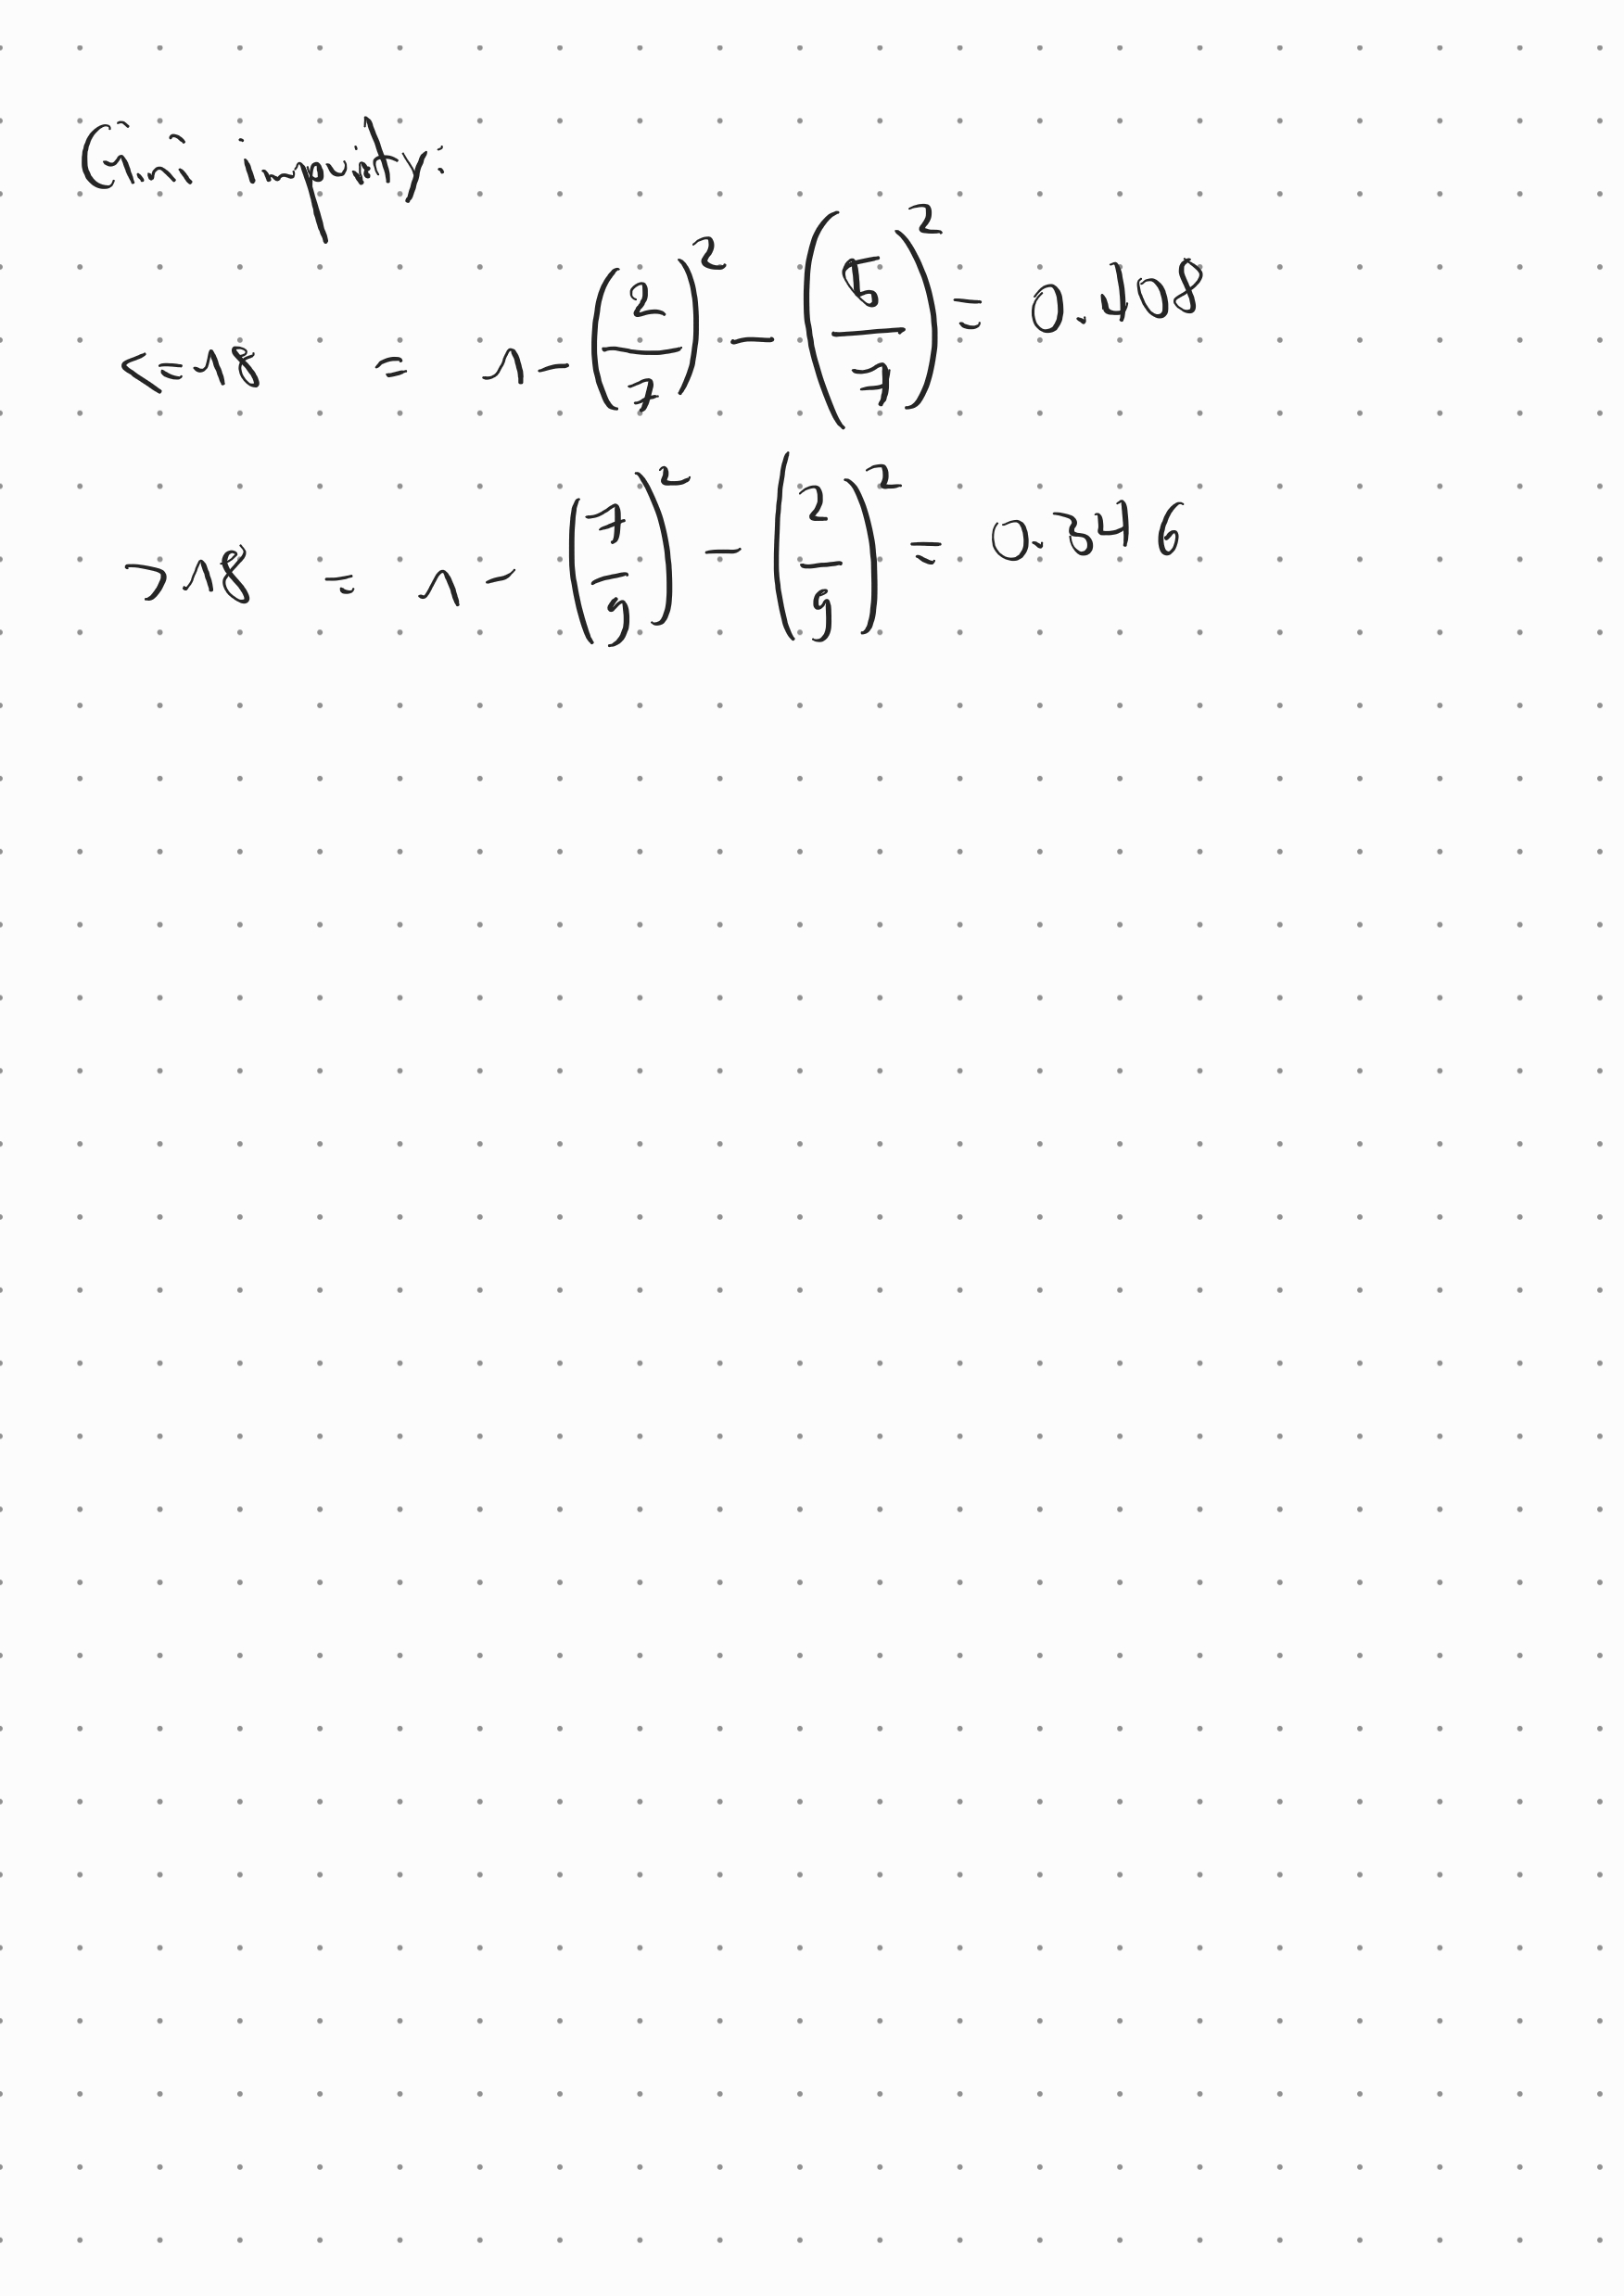 Gini impurity:
<=18 = 1 - (2/7)^2 - (5/7)^2 = 0.408
>18 = 1 - (7/9)^2 - (2/9)^2 = 0.346